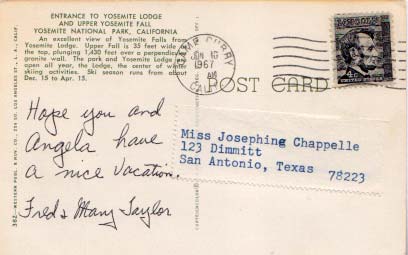 ENTRANCE TO YOSEMITE LODGE
AND UPPER YOSEMITE FALL
YOSEMITE NATIONAL PARK, CALIFORNIA
An excellent view of Yosemite Falls from
Yosemite Lodge. Upper Fall is 35 feet wide at
the top, plunging 1,430 feet over a perpendicular
granite wall. The park and Yosemite Lodge are
open all year, the Lodge, the center of winter
skiing activities. Ski season runs from about
Dec. 15 to Apr. 15.
CAMP CURRY
JUN 16
AM
1967
CALIF.
4¢
UNITED
POST CARD
Hope you and
Angela have
a nice vacation.
Fred & Mary Taylor
Miss Josephing Chappelle
123 Dimmitt
San Antonio, Texas 78223